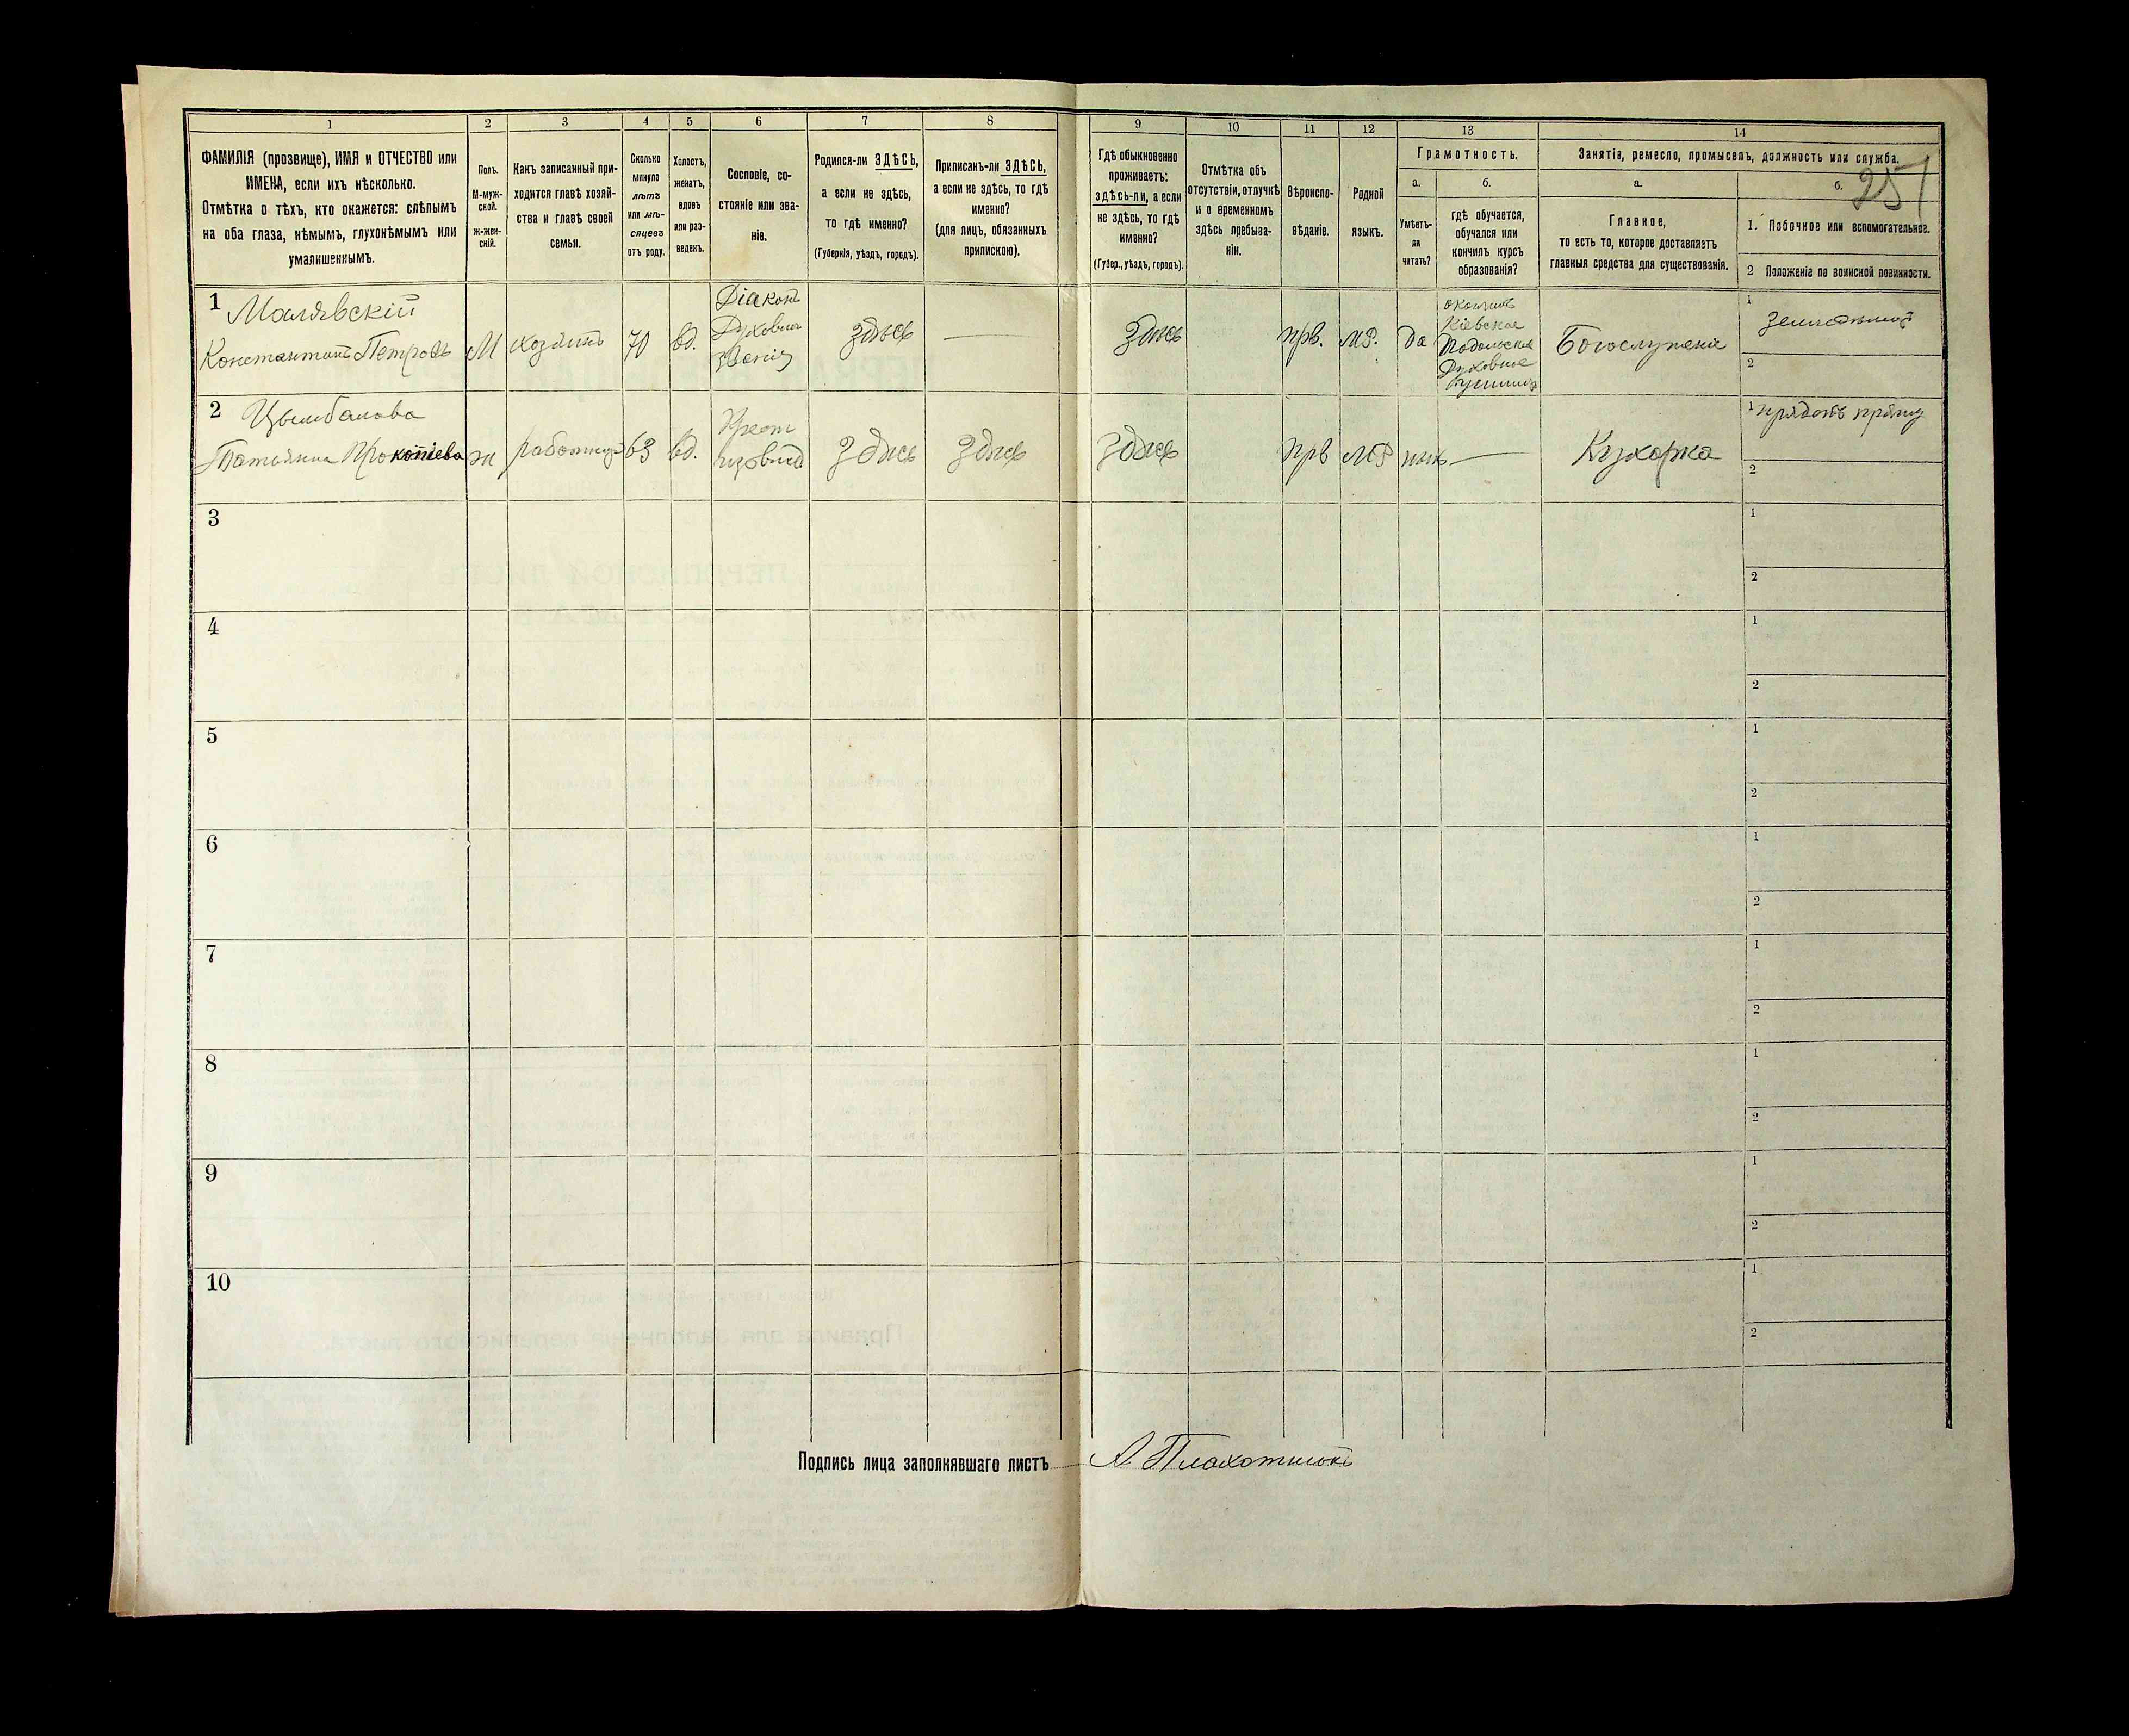 1 2 3 4 5 6 7 8 9 10 11 12 13 14
ФАМИЛІЯ (прозвище), ИМЯ и ОТЧЕСТВО или
ИМЕНА, если ихъ нѣсколько.
Отмѣтка о тѣхъ, кто окажется: слѣпымъ
на оба глаза, нѣмымъ, глухонѣмымъ или
умалишеннымъ.
Полъ.
М-муж-
ской.
Ж-жен-
скій.
Какъ записанный при-
ходится главѣ хозяй-
ства и главѣ своей
семьи.
Сколько
минуло
лѣтъ
или мѣ-
сяцевъ
отъ роду.
Холостъ,
женатъ,
вдовъ
или раз-
веденъ.
Сословіе, со-
стояніе или зва-
ніе.
Родился-ли ЗДѢСЬ,
а если не здѣсь,
то гдѣ именно?
(Губернія, уѣздъ, городъ).
Приписанъ-ли ЗДѢСЬ,
а если не здѣсь, то гдѣ
именно?
(для лицъ, обязанныхъ
припискою).
Гдѣ обыкновенно
проживаетъ:
здѣсь-ли, а если
не здѣсь, то гдѣ
именно?
(Губер., уѣздъ, городъ).
Отмѣтка объ
отсутствіи, отлучкѣ
и о временномъ
здѣсь пребыва-
ніи.
Вѣроиспо-
вѣданіе.
Родной
языкъ.
Грамотность.
а.
Умѣетъ-
ли
читать?
б.
гдѣ обучается,
обучался или
кончилъ курсъ
образованія?
Занятіе, ремесло, промыселъ, должность или служба.
а.
Главное,
то есть то, которое доставляетъ
главныя средства для существованія.
б.
251
1. Побочное или вспомогательное.
2 Положеніе по воинской повинности.
1 Малявскій
Константинъ Петровъ
М
хозяинъ
70
вд.
Діаконъ
Духовн
званія
здѣсь
—
здѣсь
прв.
МР.
да
окончилъ
Кіевское
Подольское
Духовное
училище
Богослуженіе
1
земледѣліе
2
2 Цымбалова
Татьяна Прокопіева
ж
работница
63
вд.
Крест
здѣсь
здѣсь
здѣсь
прв
МР
нѣтъ
—
Кухарка
1 прядетъ пряжу
2
3
1
2
4
1
2
5
1
2
6
1
2
7
1
2
8
1
2
9
1
2
10
1
2
Подпись лица заполнявшаго листъ А. Плахотнюкъ